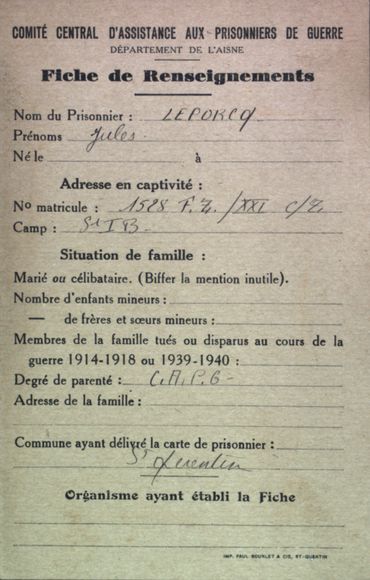 COMITÉ CENTRAL D'ASSISTANCE AUX PRISONNIERS DE GUERRE
DÉPARTEMENT DE L'AISNE
Fiche de Renseignements
Nom du Prisonnier : LEPORCQ
Prénoms Jules
Né le à
Adresse en captivité :
No matricule : 1528 F.Z. /XXI C/Z.
Camp : St I B
Situation de famille :
Marié ou célibataire. (Biffer la mention inutile).
Nombre d'enfants mineurs :
— de frères et sœurs mineurs :
Membres de la famille tués ou disparus au cours de la
guerre 1914-1918 ou 1939-1940 :
Degré de parenté : C.A.P.G
Adresse de la famille :
Commune ayant délivré la carte de prisonnier :
St Quentin
Organisme ayant établi la Fiche
IMP. PAUL BOURLET & CIE, ST-QUENTIN